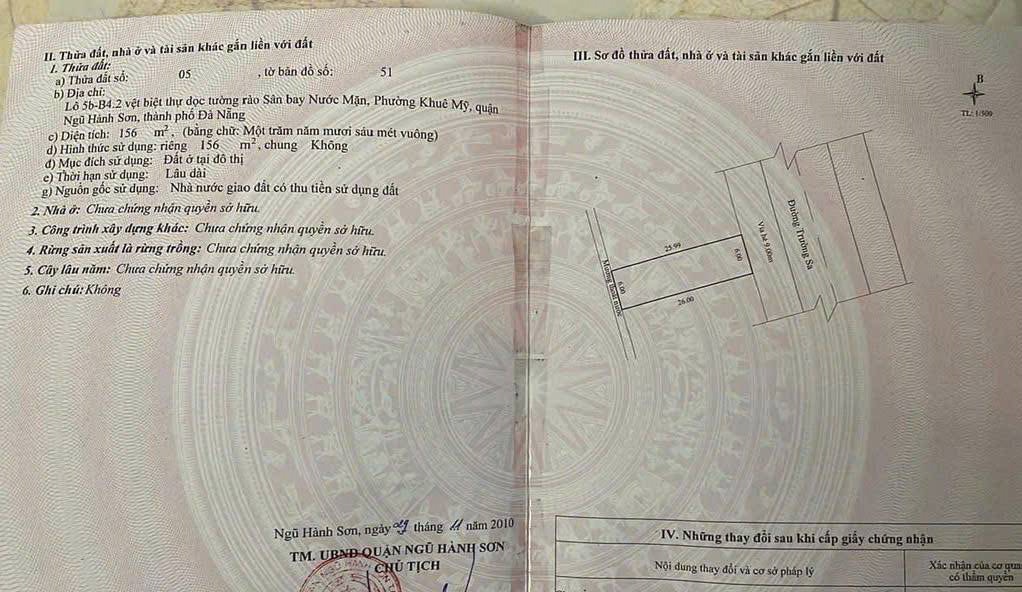 II. Thửa đất, nhà ở và tài sản khác gắn liền với đất
1. Thửa đất:
a) Thửa đất số: 05 , tờ bản đồ số: 51
b) Địa chỉ:
Lô 5b-B4.2 vệt biệt thự dọc tường rào Sân bay Nước Mặn, Phường Khuê Mỹ, quận
Ngũ Hành Sơn, thành phố Đà Nẵng
c) Diện tích: 156 m², (bằng chữ: Một trăm năm mươi sáu mét vuông)
d) Hình thức sử dụng: riêng 156 m², chung Không
đ) Mục đích sử dụng: Đất ở tại đô thị
e) Thời hạn sử dụng: Lâu dài
g) Nguồn gốc sử dụng: Nhà nước giao đất có thu tiền sử dụng đất
2. Nhà ở: Chưa chứng nhận quyền sở hữu.
3. Công trình xây dựng khác: Chưa chứng nhận quyền sở hữu.
4. Rừng sản xuất là rừng trồng: Chưa chứng nhận quyền sở hữu.
5. Cây lâu năm: Chưa chứng nhận quyền sở hữu.
6. Ghi chú: Không
Ngũ Hành Sơn, ngày 29 tháng 11 năm 2010
TM. UBND QUẬN NGŨ HÀNH SƠN
CHỦ TỊCH
III. Sơ đồ thửa đất, nhà ở và tài sản khác gắn liền với đất
B
TL: 1/500
Đường Trường Sa
Vỉa hè 9.00m
25.99
6.00
6.00
26.00
Mương thoát nước
IV. Những thay đổi sau khi cấp giấy chứng nhận
Nội dung thay đổi và cơ sở pháp lý
Xác nhận của cơ qua
có thẩm quyền